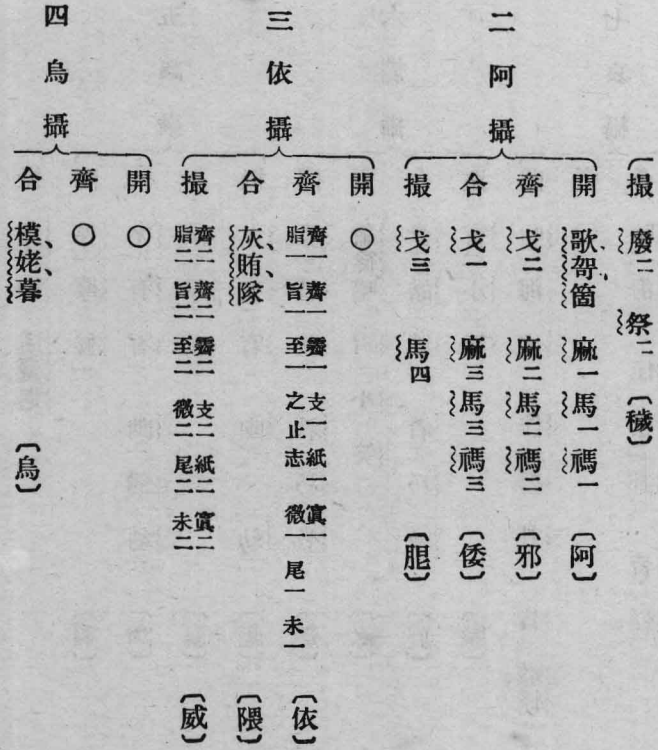 撮 廢二 祭二 〔穢〕
二 阿 攝
開 歌哿箇 麻一 馬一 禡一 〔阿〕
齊 戈二 麻二 馬二 禡二 〔邪〕
合 戈一 麻三 馬三 禡三 〔倭〕
撮 戈三 馬四
三 依 攝
開 ○
齊 齊一 薺一 霽一 支一 紙一 寘一
脂一 旨一 至一 之止志 微一 尾一 未一 〔依〕
合 灰、賄、隊 〔隈〕
撮 齊二 薺二 霽二 支二 紙二 寘二
脂二 旨二 至二 微二 尾二 未二 〔威〕
四 烏 攝
開 ○
齊 ○
合 模、姥、暮 〔烏〕